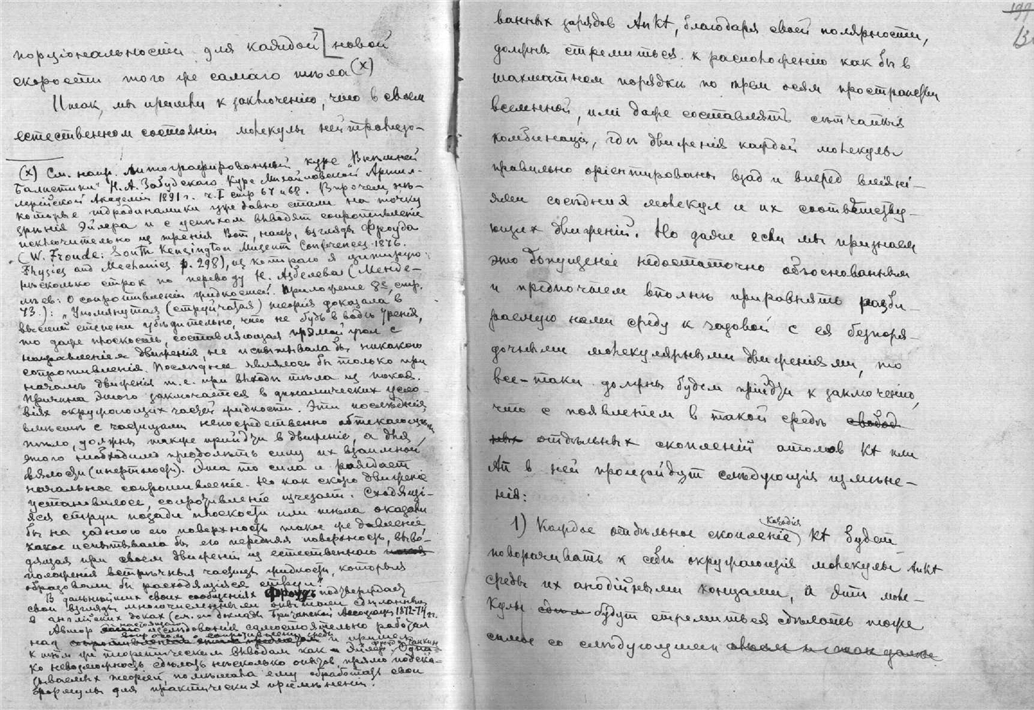 порціональности для каждой новой
скорости того же самаго тѣла (х)
Итак, мы пришли к заключенію, что в своем
естественном состояніи молекулы нейтрализо-
(х) См. напр. литографированный курс Внѣшней
Балистики Н. А. Забудскаго Курс Михайловской Артил-
лерійской Академіи 1891 г. ч. I стр 67 и 68. Впрочем нѣ-
которые гидродинамики уже давно стали на точку
зрѣнія Эйлера и с успѣхом выводят сопротивленіе
исключительно из тренія Вот, напр, взгляд Фроуда
(W. Froude: South Kensington Museum Conferences 1876.
Physics and Mechanics p. 298), из котораго я цитирую
нѣсколько строк по переводу Н. Азбелева (Менде-
лѣев: О сопротивленіи жидкостей. Приложеніе стр.
73.): "Упомянутая (струйчатая) теорія доказала в
высшей степени убѣдительно, что не будь в водѣ тренія,
то даже плоскость, составляющая прямой угол с
направленіем движенія не испытывала бы никакого
сопротивленія. Послѣднее являлось бы только при
началѣ движенія т.е. при выходѣ тѣла из покоя.
Причина этого заключается в динамических усло-
віях окружающих частей жидкости. Эти послѣднія
вмѣстѣ с частицами непосредственно обтекающими
тѣло, должны также прийдти в движеніе, а для
этого необходимо преодолѣть силу их взаимной
вялости (инертности). Эта то сила и рождает
начальное сопротивленіе. Но как скоро движеніе
установилось, сопротивленіе изчезает. Сходящі-
яся струи позади плоскости или тѣла оказали
бы на заднюю его поверхность такое же давленіе,
какое испытывала бы его передняя поверхность, выво-
дящая при своем движеніи из естественного
положенія встрѣчныя частицы жидкости, которыя
образовали бы расходящіяся струи".
В дальнѣйших своих сообщеніях Фроуд подтверждает
свои взгляды многочисленными опытами сдѣланными
в англійских доках (см. его доклады Британской Ассоціаціи 1872-74 гг.
Автор настоящаго изслѣдованія самостоятельно работал
над вопросом о сопротивленіи среды и пришел
к тѣм же теоретическим выводам как Эйлер,
ко невозможность сдѣлать нѣсколько опытов прямо подска-
зываемых теоріей, помѣшала ему обработать свои
формулы для практических примѣненій.
ванных зарядов An Kt, благодаря своей полярности,
должны стремиться к расположенію как бы в
шахматном порядкѣ по трем осям пространства
вселенной, или даже составлять сѣтчатыя
комбинаціи, гдѣ движенія каждой молекулы
правильно оріентированы взад и вперед вліяні-
ями сосѣдних молекул и их соотвѣтству-
ющих движеній. Но даже если мы признаем
это допущеніе недостаточно обоснованным
и предпочтем вполнѣ приравнять разби-
раемую нами среду к газовой с ея безпоря-
дочными молекулярными движеніями, то
все-таки должны будем прійдти к заключенію,
что с появленіем в такой средѣ
отдѣльных скопленій атомов Kt или
An в ней произойдут слѣдующія измѣне-
нія:
1) Каждое отдѣльное скопленіе Kt будет
поворачивать к себѣ окружающія молекулы An Kt
среды их анодійными концами, а эти моле-
кулы будут стремиться сдѣлать тоже
самое со слѣдующими